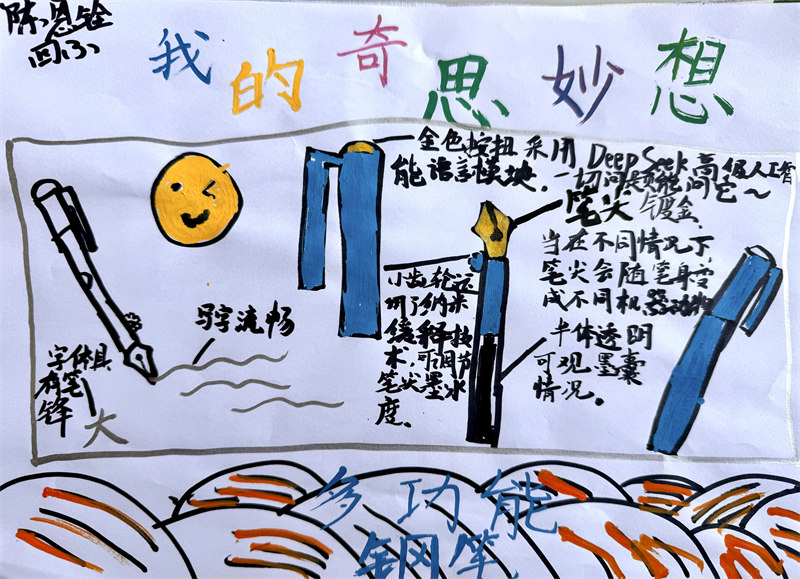 陈恩铨
四(3)
我的奇思妙想
金色按扭采用DeepSeek高级人工智
能语言模块，一切问题都能问它~
笔尖镀金，
当在不同情况下，
笔尖会随笔身变
成不同机器动物
小齿轮运
用了纳米
缓释技
术，可调节
笔尖墨水
度。
半体透明
可观墨囊
情况。
写字流畅
字体具
有笔
锋
大
多功能
钢笔